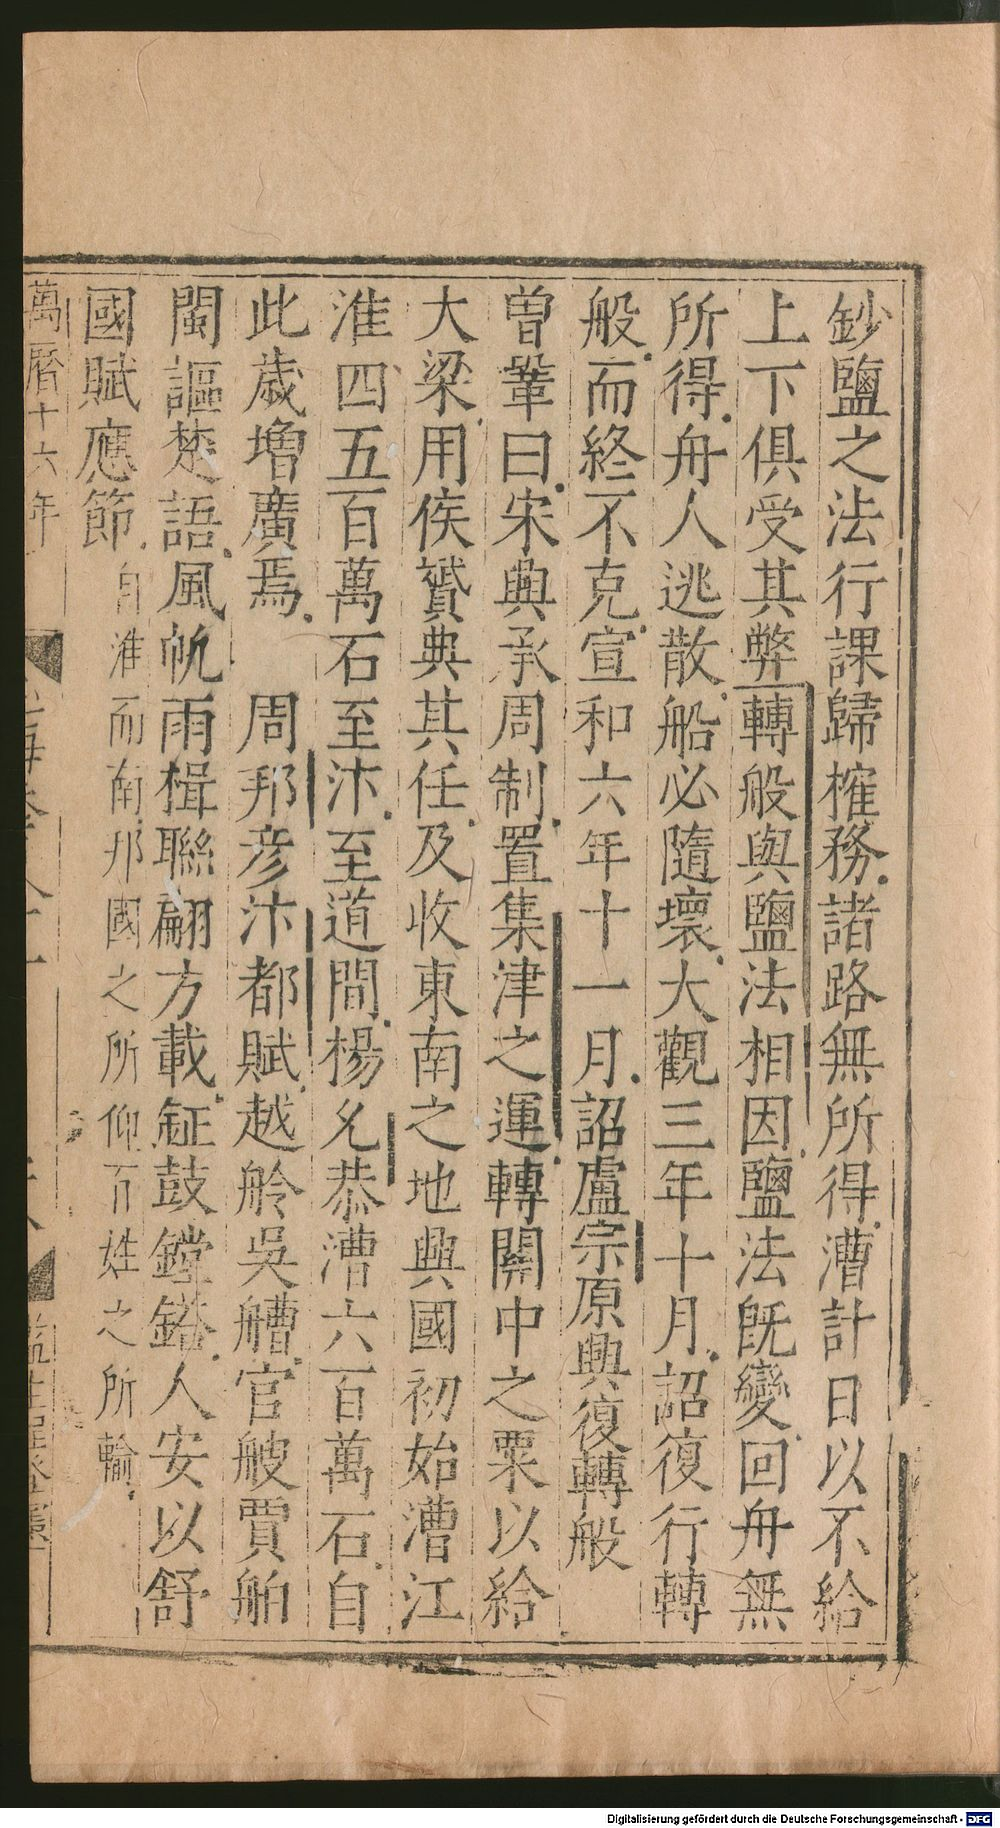 鈔鹽之法行課歸榷務諸路無所得漕計日以不給
上下俱受其弊轉般與鹽法相因鹽法旣變回舟無
所得舟人逃散船必隨壞大觀三年十月詔復行轉
般而終不克宣和六年十一月詔盧宗原興復轉般
曾鞏曰宋興承周制置集津之運轉關中之粟以給
大梁用侯贇典其任及收東南之地興國初始漕江
淮四五百萬石至汴至道間楊允恭漕六百萬石自
此歲增廣焉　周邦彥汴都賦越舲吳艚官艘賈舶
閩謳楚語風帆雨楫聯翩方載鉦鼓鏜鎝人安以舒
國賦應節自淮而南邦國之所仰百姓之所輸
萬曆十六年
Digitalisierung gefördert durch die Deutsche Forschungsgemeinschaft - DFG